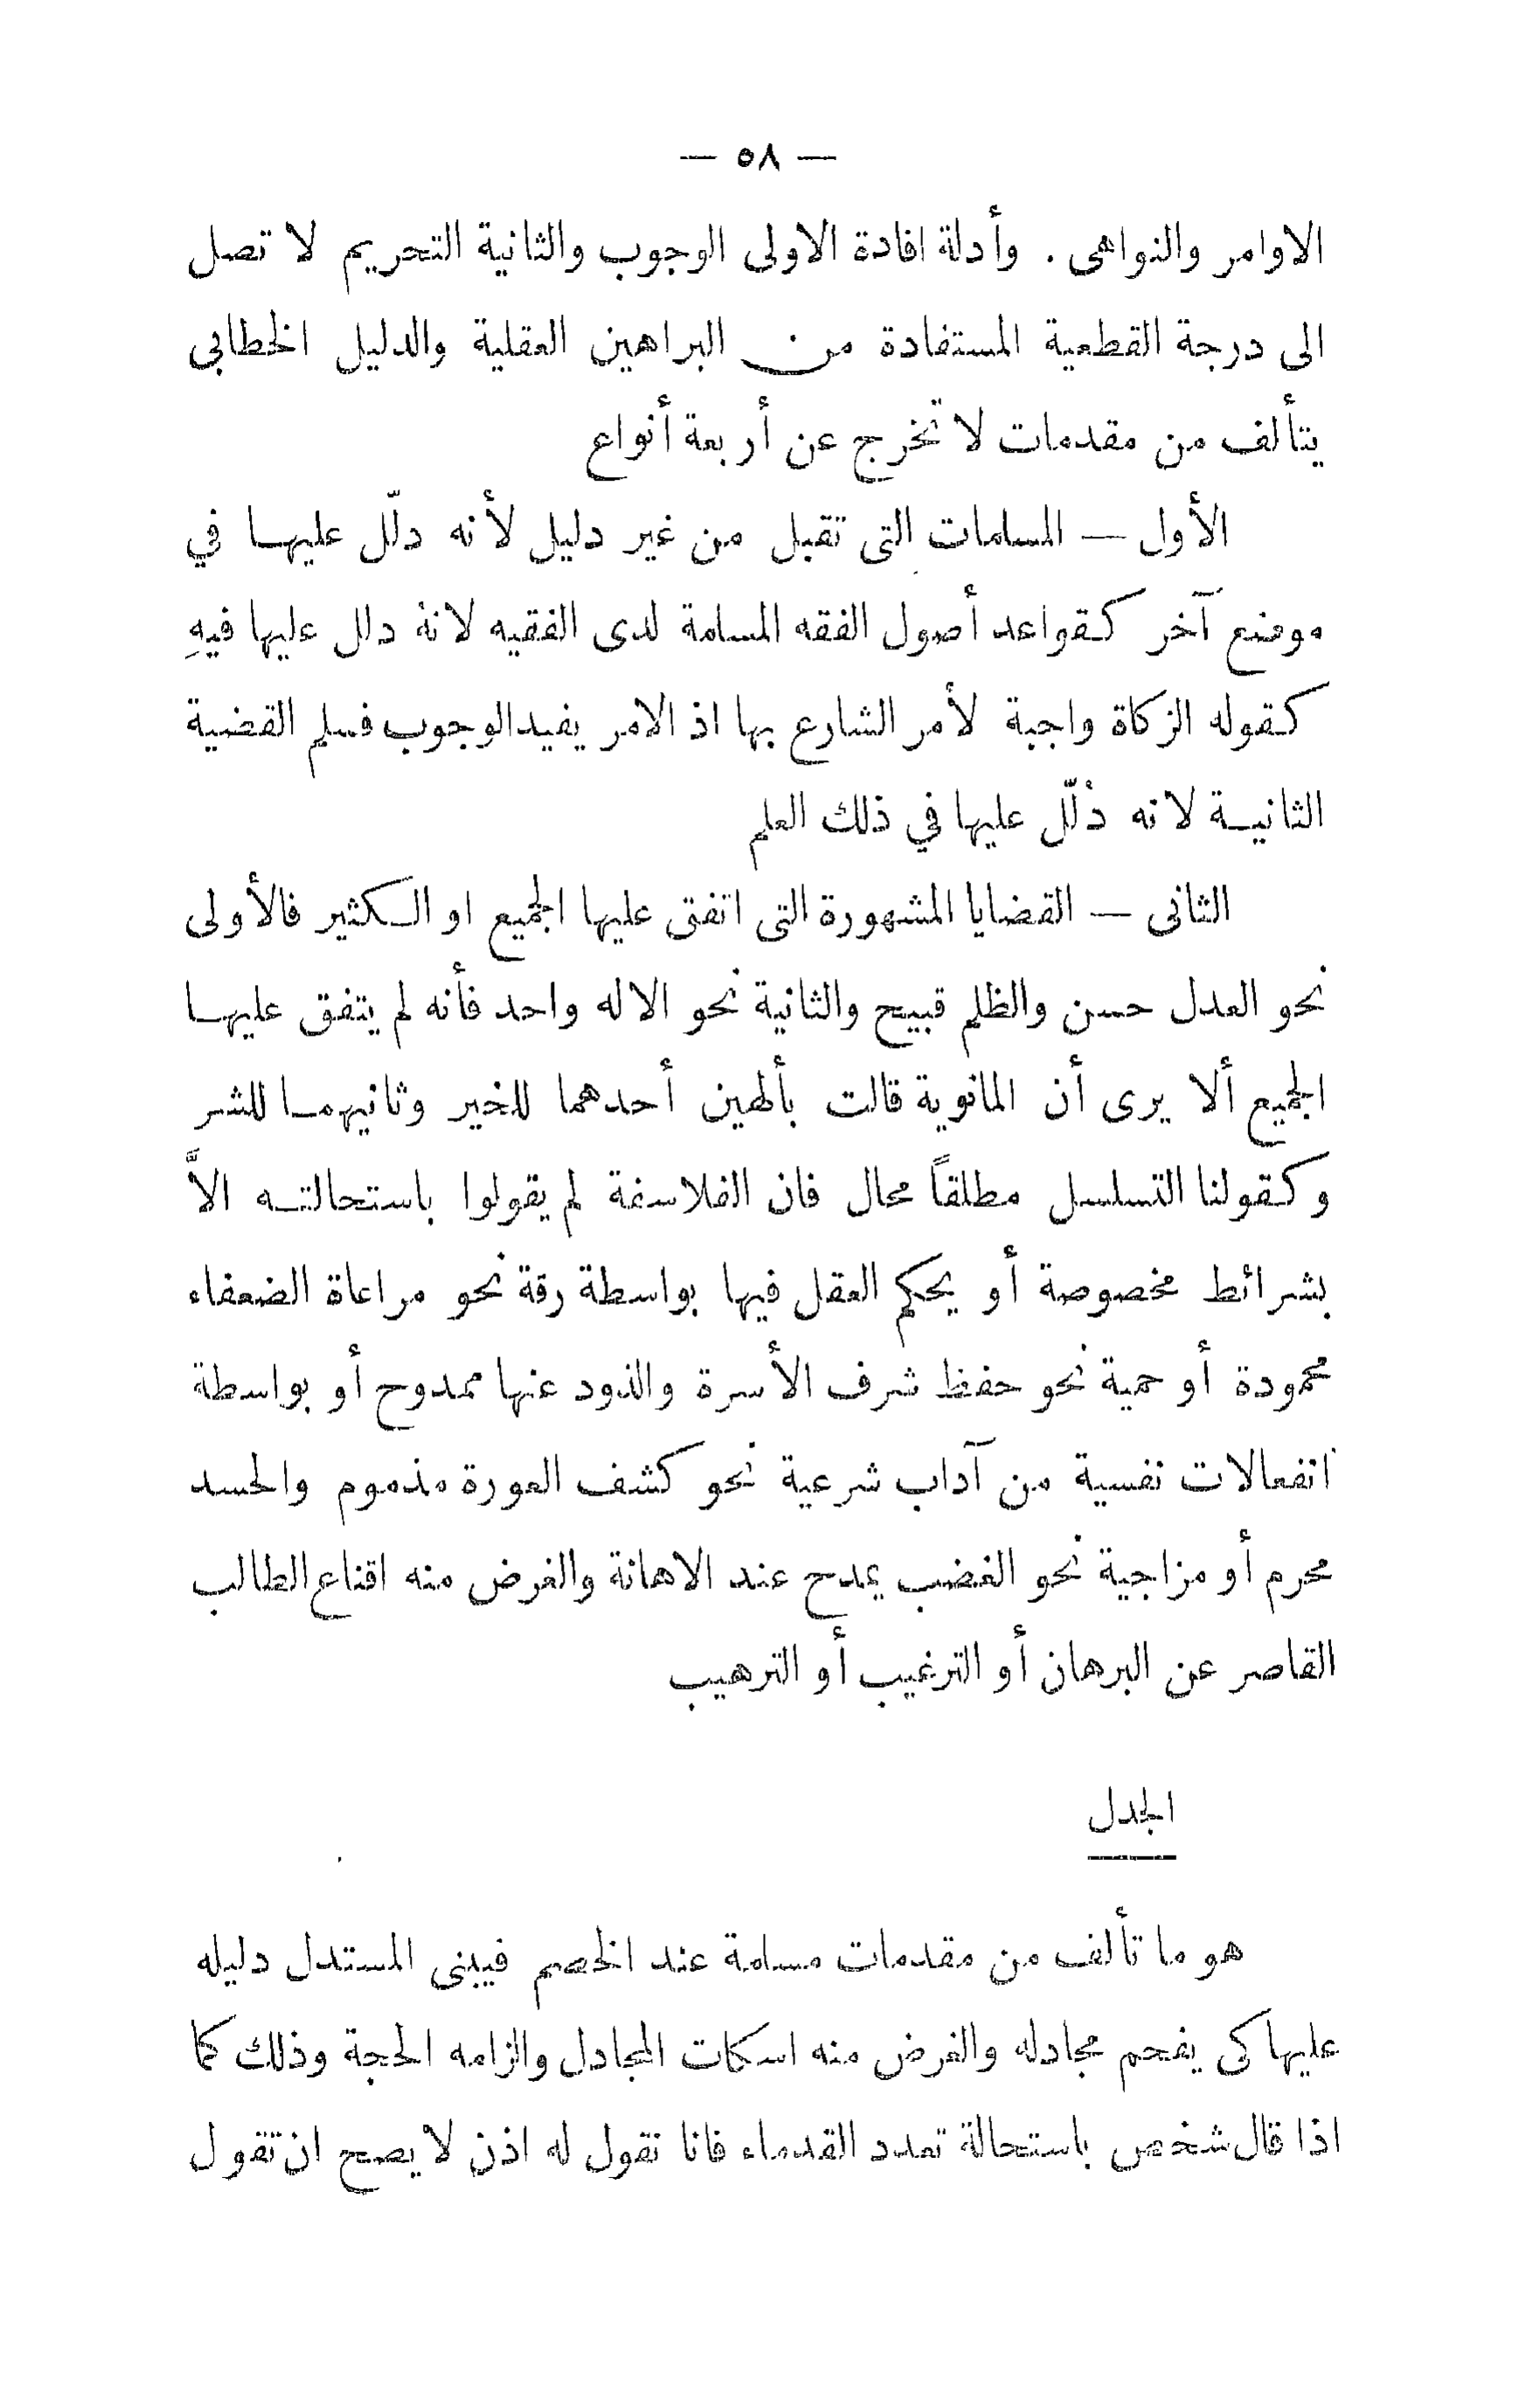 — ٥٨ —
الاوامر والنواهى . وأدلة افادة الاولى الوجوب والثانية التحريم لا تصل
الى درجة القطعية المستفادة من البراهين العقلية والدليل الخطابى
يتألف من مقدمات لا تخرج عن أربعة أنواع
الأول — المسلمات التى تقبل من غير دليل لأنه دلّل عليها في
موضع آخر كقواعد أصول الفقه المسلمة لدى الفقيه لانهُ دلل عليها فيهِ
كقوله الزكاة واجبة لأمر الشارع بها اذ الامر يفيد الوجوب فسلم القضية
الثانية لانه دُلّل عليها في ذلك العلم
الثانى — القضايا المشهورة التى اتفق عليها الجميع او الكثير فالأولى
نحو العدل حسن والظلم قبيح والثانية نحو الاله واحد فأنه لم يتفق عليها
الجميع ألا يرى أن المانوية قالت بألهين أحدهما للخير وثانيهما للشر
وكقولنا التسلسل مطلقاً محال فان الفلاسفة لم يقولوا باستحالته الاَّ
بشرائط مخصوصة أو يحكم العقل فيها بواسطة رقة نحو مراعاة الضعفاء
محمودة أو حمية نحو حفظ شرف الأسرة والذود عنها ممدوح أو بواسطة
انفعالات نفسية من آداب شرعية نحو كشف العورة مذموم والحسد
محرم أو مزاجية نحو الغضب يمدح عند الاهانة والغرض منه اقناع الطالب
القاصر عن البرهان أو الترغيب أو الترهيب
الجدل
هو ما تألف من مقدمات مسلمة عند الخصم فيبنى المستدل دليله
عليها كى يفحم مجادله والغرض منه اسكات المجادل والزامه الحجة وذلك كما
اذا قال شخص باستحالة تعدد القدماء فانا نقول له اذن لا يصح ان تقول